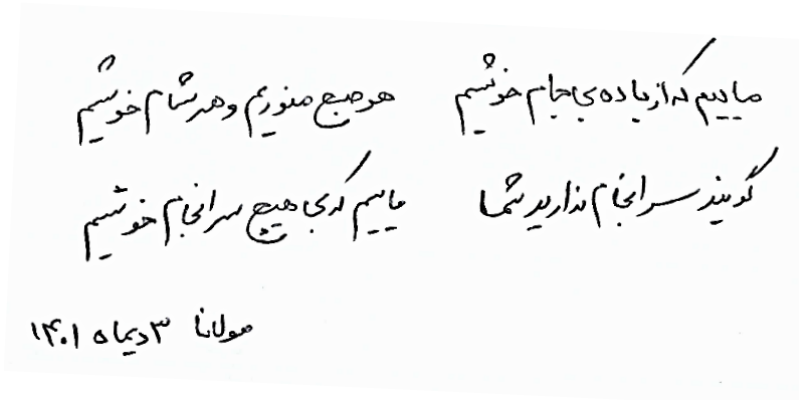 ماییم که از باده‌ی بی جام خوشیم هر صبح منوریم و هر شام خوشیم
گویند سرانجام ندارید شما ماییم که بی هیچ سرانجام خوشیم
مولانا ۳ دیماه ۱۴۰۱